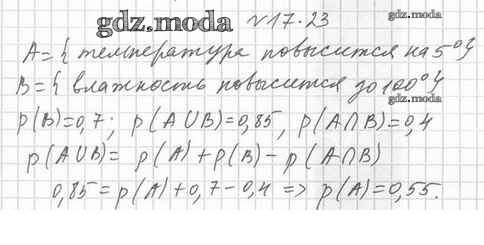 gdz.moda №17.23 gdz.moda
A={ температура повысится на 5°}
B={ влажность повысится до 100°}
gdz.moda
p(B)=0,7; p(A∪B)=0,85, p(A∩B)=0,4
p(A∪B)= p(A)+p(B)-p(A∩B)
0,85=p(A)+0,7-0,4 => p(A)=0,55.